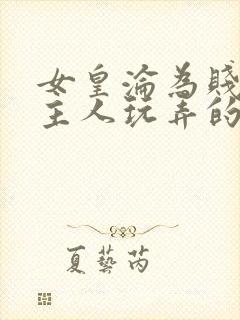 女皇淪為賤
主人玩弄的
夏藝芮